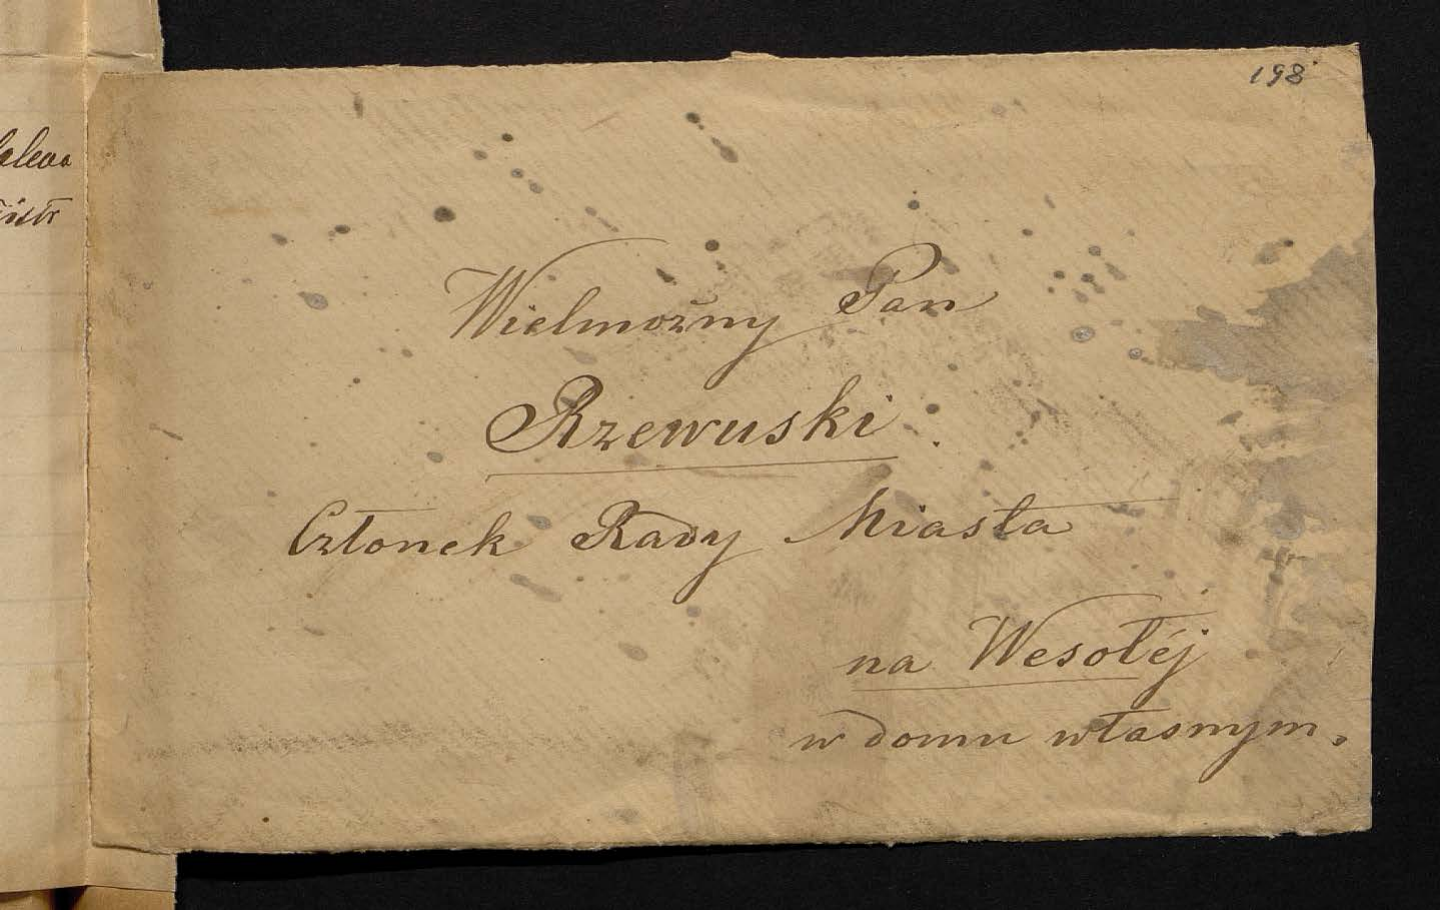 198
Wielmożny Pan
Rzewuski
Członek Rady Miasta
na Wesołéj
w domu własnym.